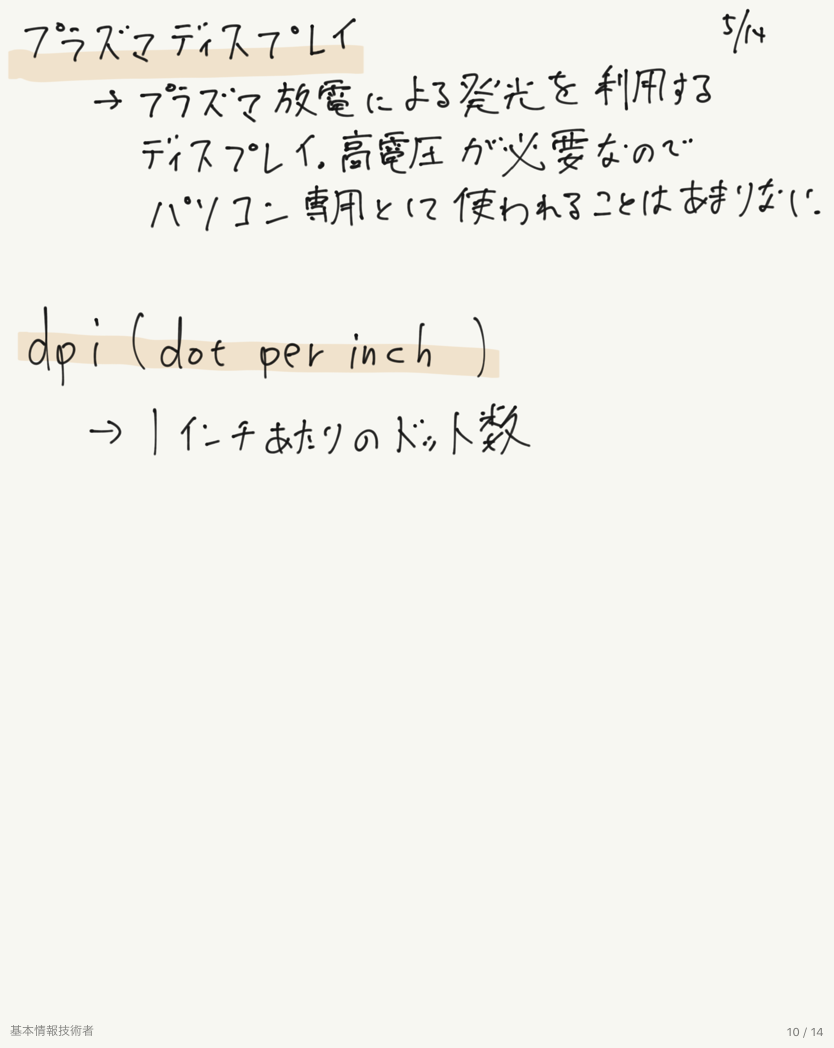 プラズマディスプレイ
5/14
→ プラズマ放電による発光を利用する
ディスプレイ。高電圧が必要なので
パソコン専用として使われることはあまりない。
dpi (dot per inch)
→ 1インチあたりのドット数
基本情報技術者
10 / 14